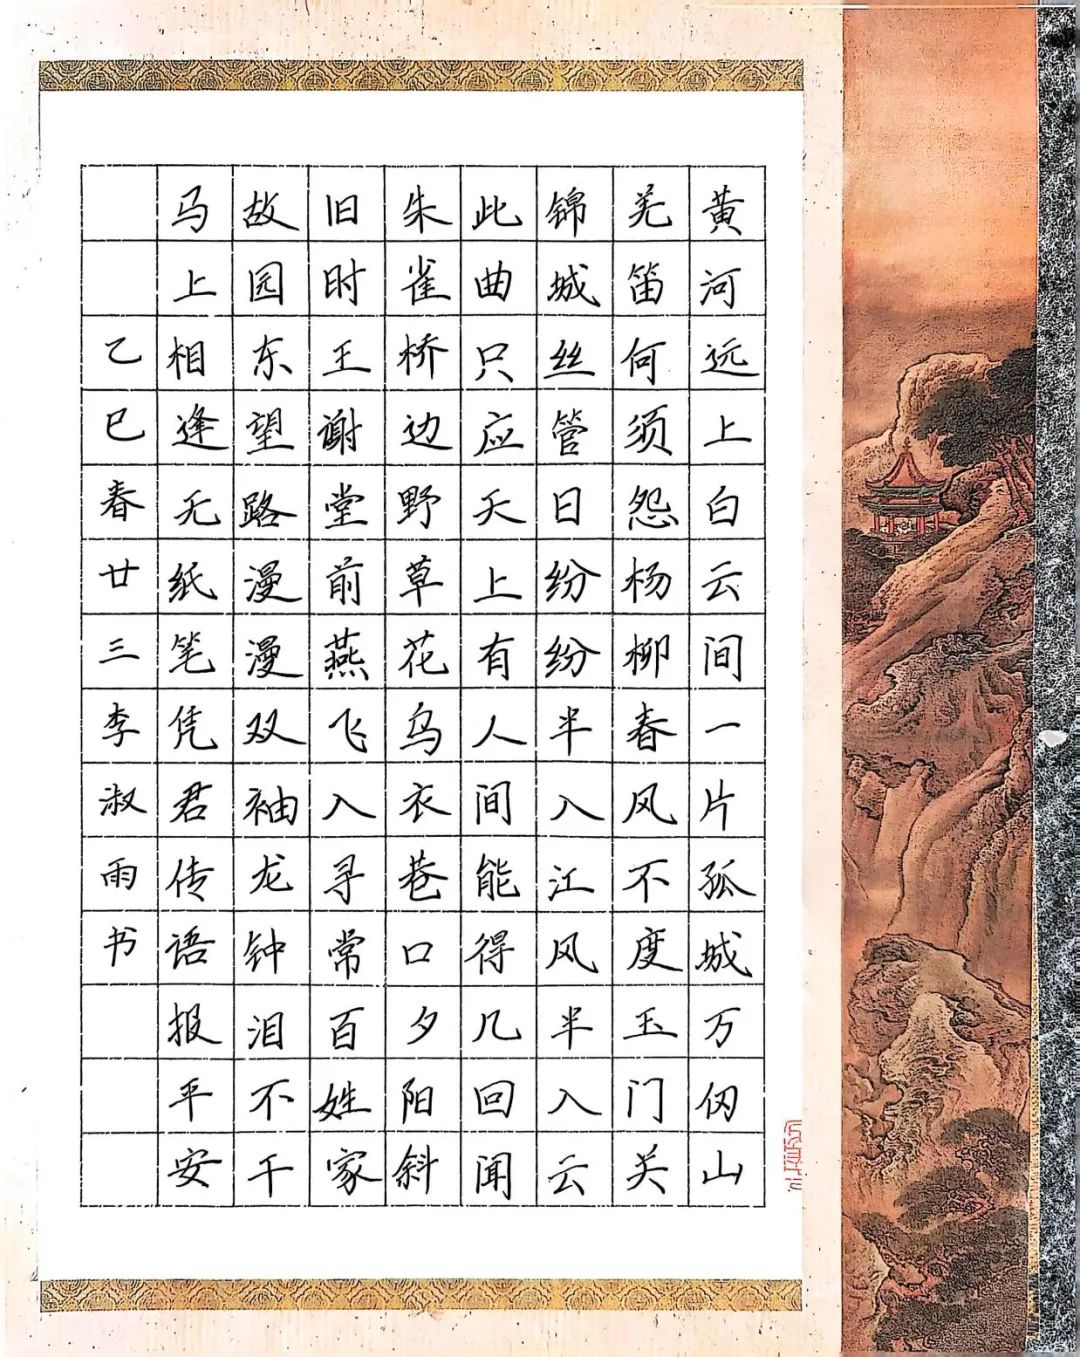 黄河远上白云间一片孤城万仞山
羌笛何须怨杨柳春风不度玉门关
锦城丝管日纷纷半入江风半入云
此曲只应天上有人间能得几回闻
朱雀桥边野草花乌衣巷口夕阳斜
旧时王谢堂前燕飞入寻常百姓家
故园东望路漫漫双袖龙钟泪不干
马上相逢无纸笔凭君传语报平安
乙巳春廿三李淑雨书